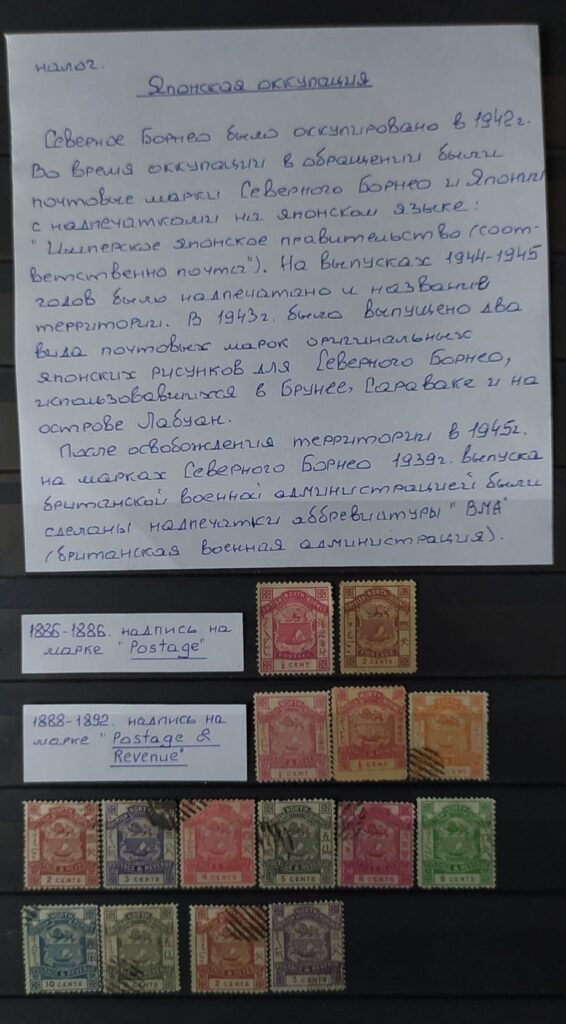 налог.
Японская оккупация
Северное Борнео было оккупировано в 1942г.
Во время оккупации в обращении были
почтовые марки Северного Борнео и Японии
с надпечатками на японском языке:
"Имперское японское правительство (соот-
ветственно почта"). На выпусках 1944-1945
годов было надпечатано и название
территории. В 1943г. было выпущено два
вида почтовых марок оригинальных
японских рисунков для Северного Борнео,
использовавшихся в Брунее, Сараваке и на
острове Лабуан.
После освобождения территории в 1945г.
на марках Северного Борнео 1939г. выпуска
британской военной администрацией были
сделаны надпечатки аббревиатуры "ВМА"
(британская военная администрация).
1886-1886. надпись на
марке "Postage"
BRITISH NORTH BORNEO
POSTAGE
½ CENT
BRITISH NORTH BORNEO
POSTAGE
2 CENTS
1888-1892. надпись на
марке "Postage &
Revenue"
½ CENT
1 CENT
1 CENT
2 CENTS
3 CENTS
4 CENTS
5 CENTS
6 CENTS
8 CENTS
10 CENTS
CENTS
2 CENTS
3 CENTS